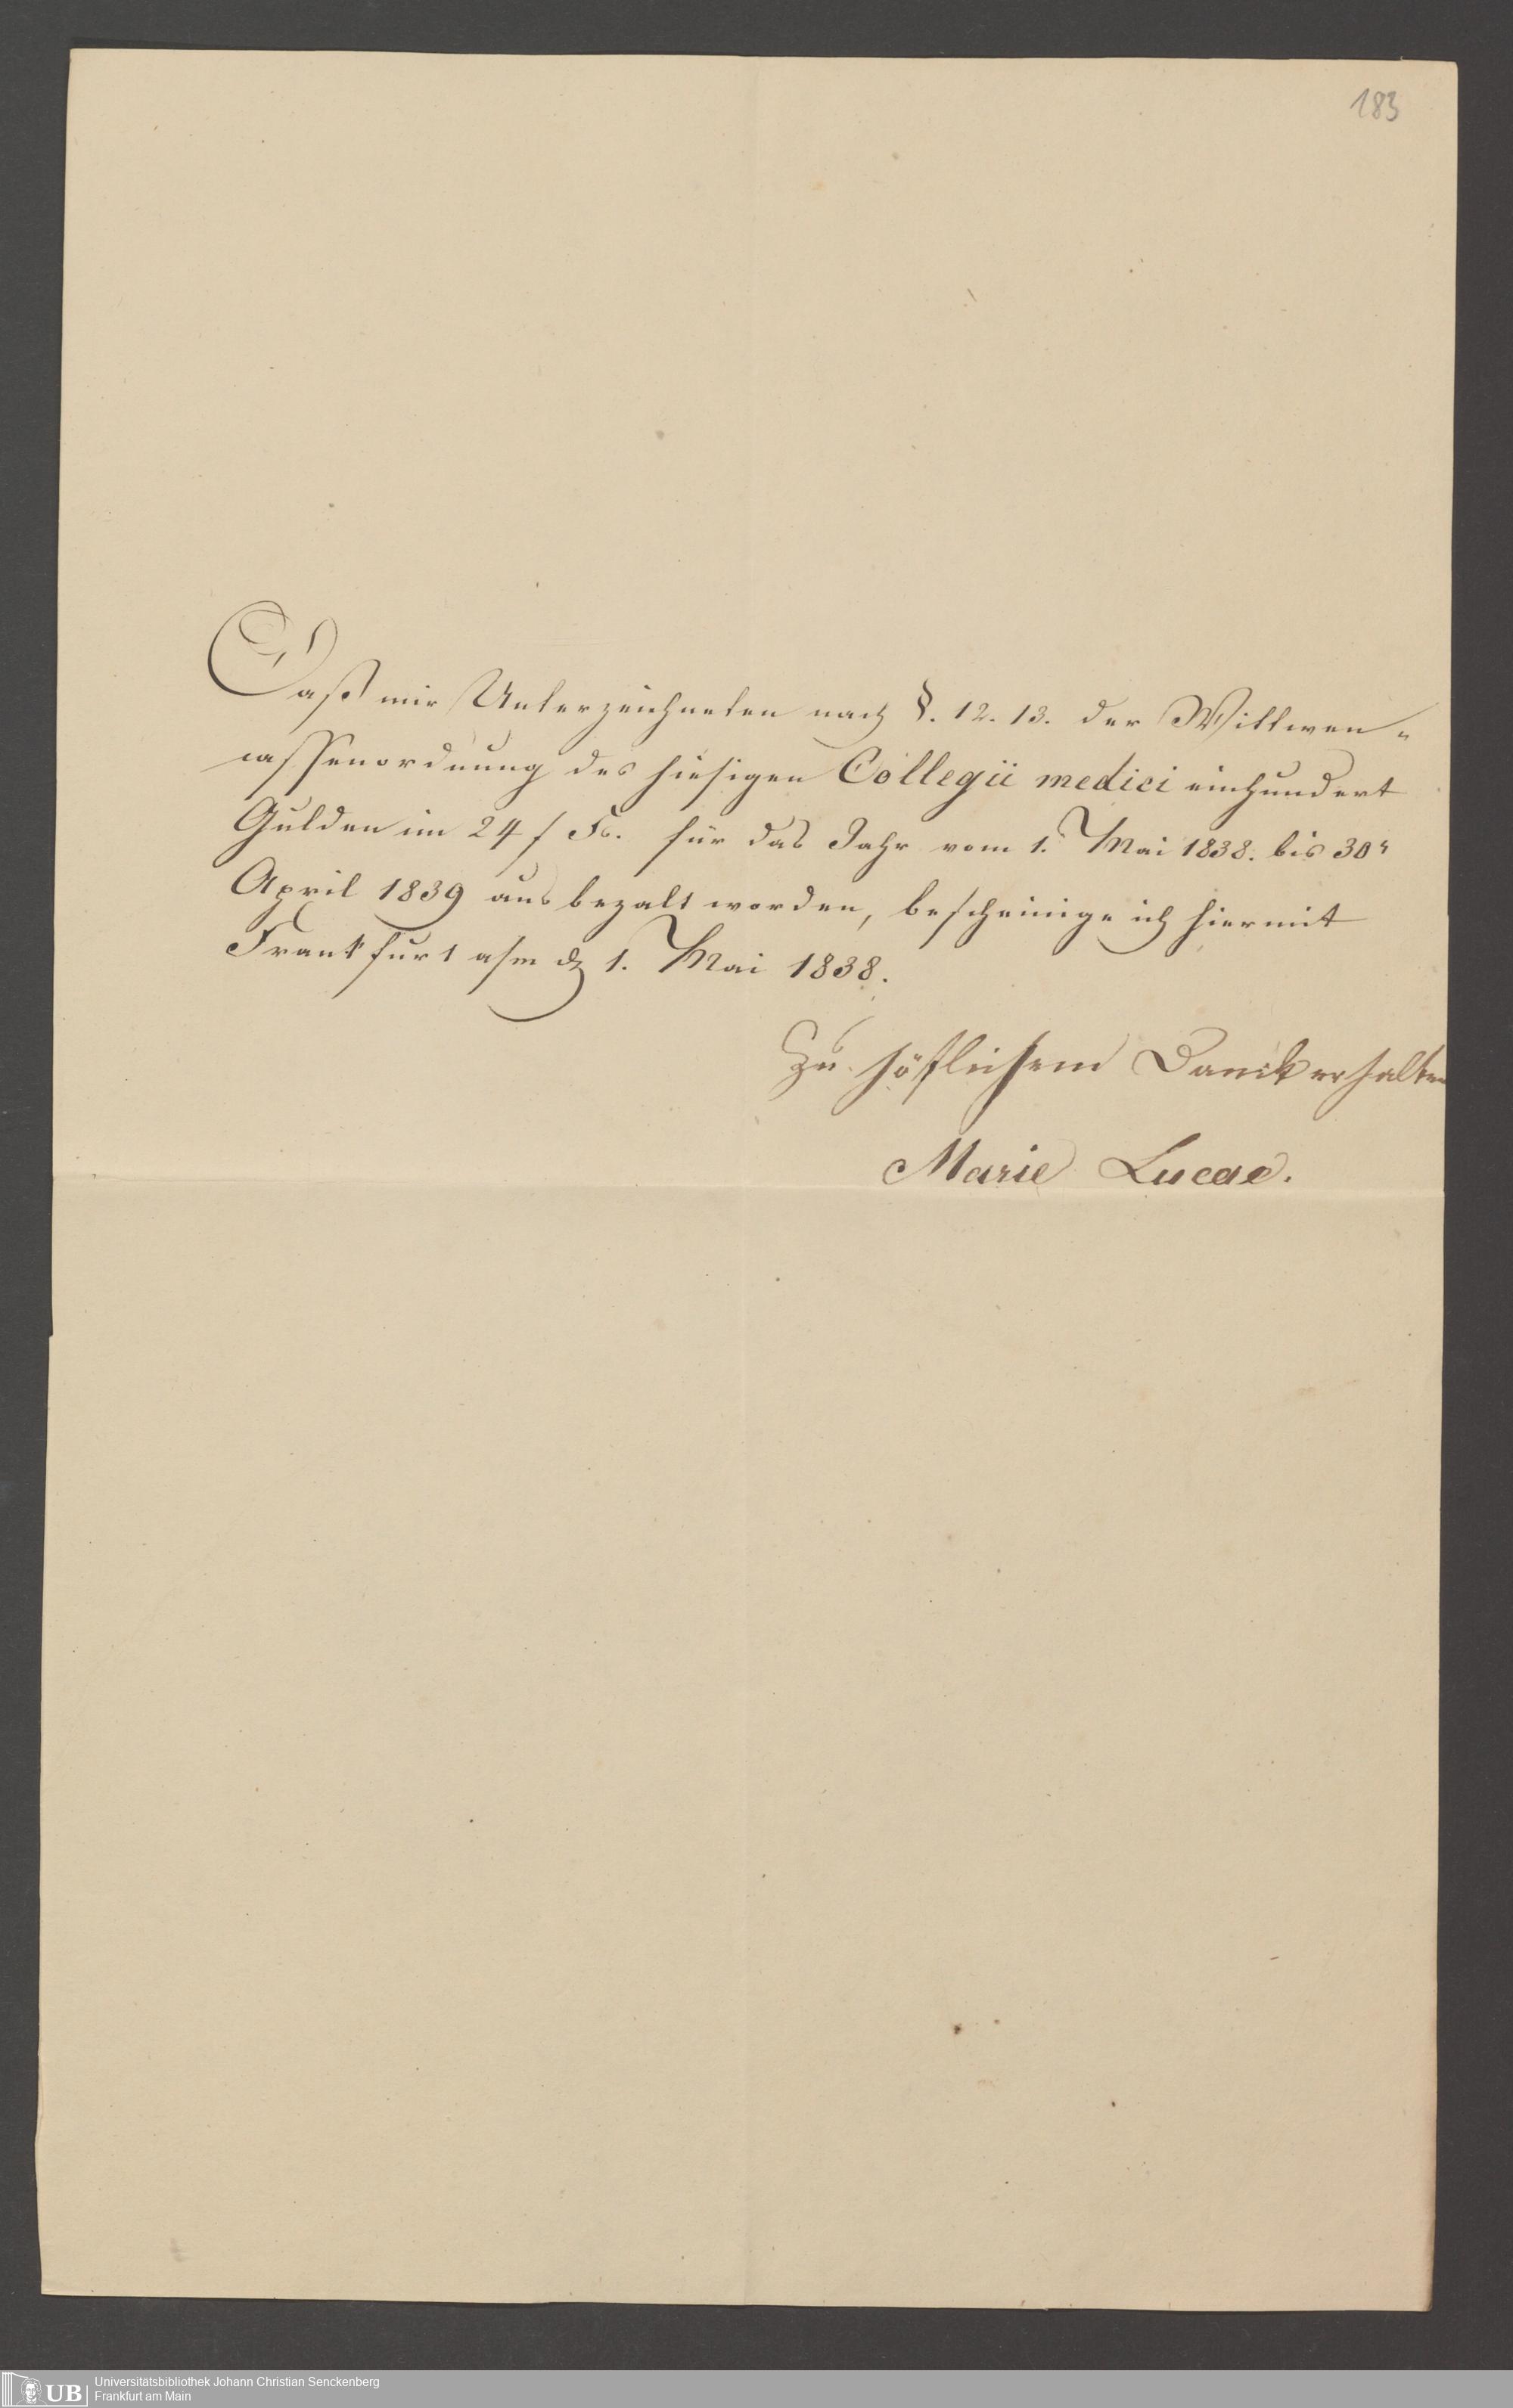 183
Daß mir Unterzeichneten nach §. 12. 13. der Wittwen-
cassenordnung des hiesigen Collegii medici einhundert
Gulden im 24 f Fs. für das Jahr vom 1. Mai 1838. bis 30r
April 1839 ausbezalt worden, bescheinige ich hiermit
Frankfurt a/m d 1. Mai 1838.
Zu höflichem Danck erhalten
Marie Lucae.
UB Universitätsbibliothek Johann Christian Senckenberg
Frankfurt am Main